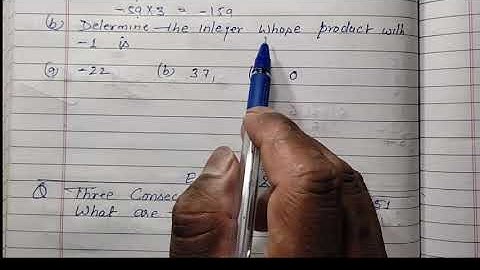 -59 × 3 = -159
(b) Determine the integer whose product with
-1 is
(a) -22 (b) 37, 0
Q Three Consec
What are 51